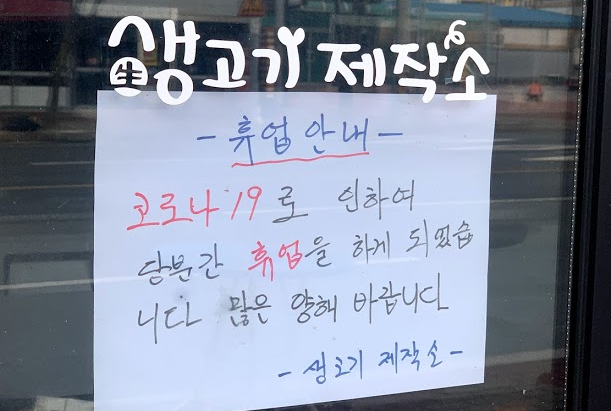 生 생고기 제작소
- 휴업 안내 -
코로나 19로 인하여
당분간 휴업을 하게 되었습
니다 많은 양해 바랍니다
- 생고기 제작소 -